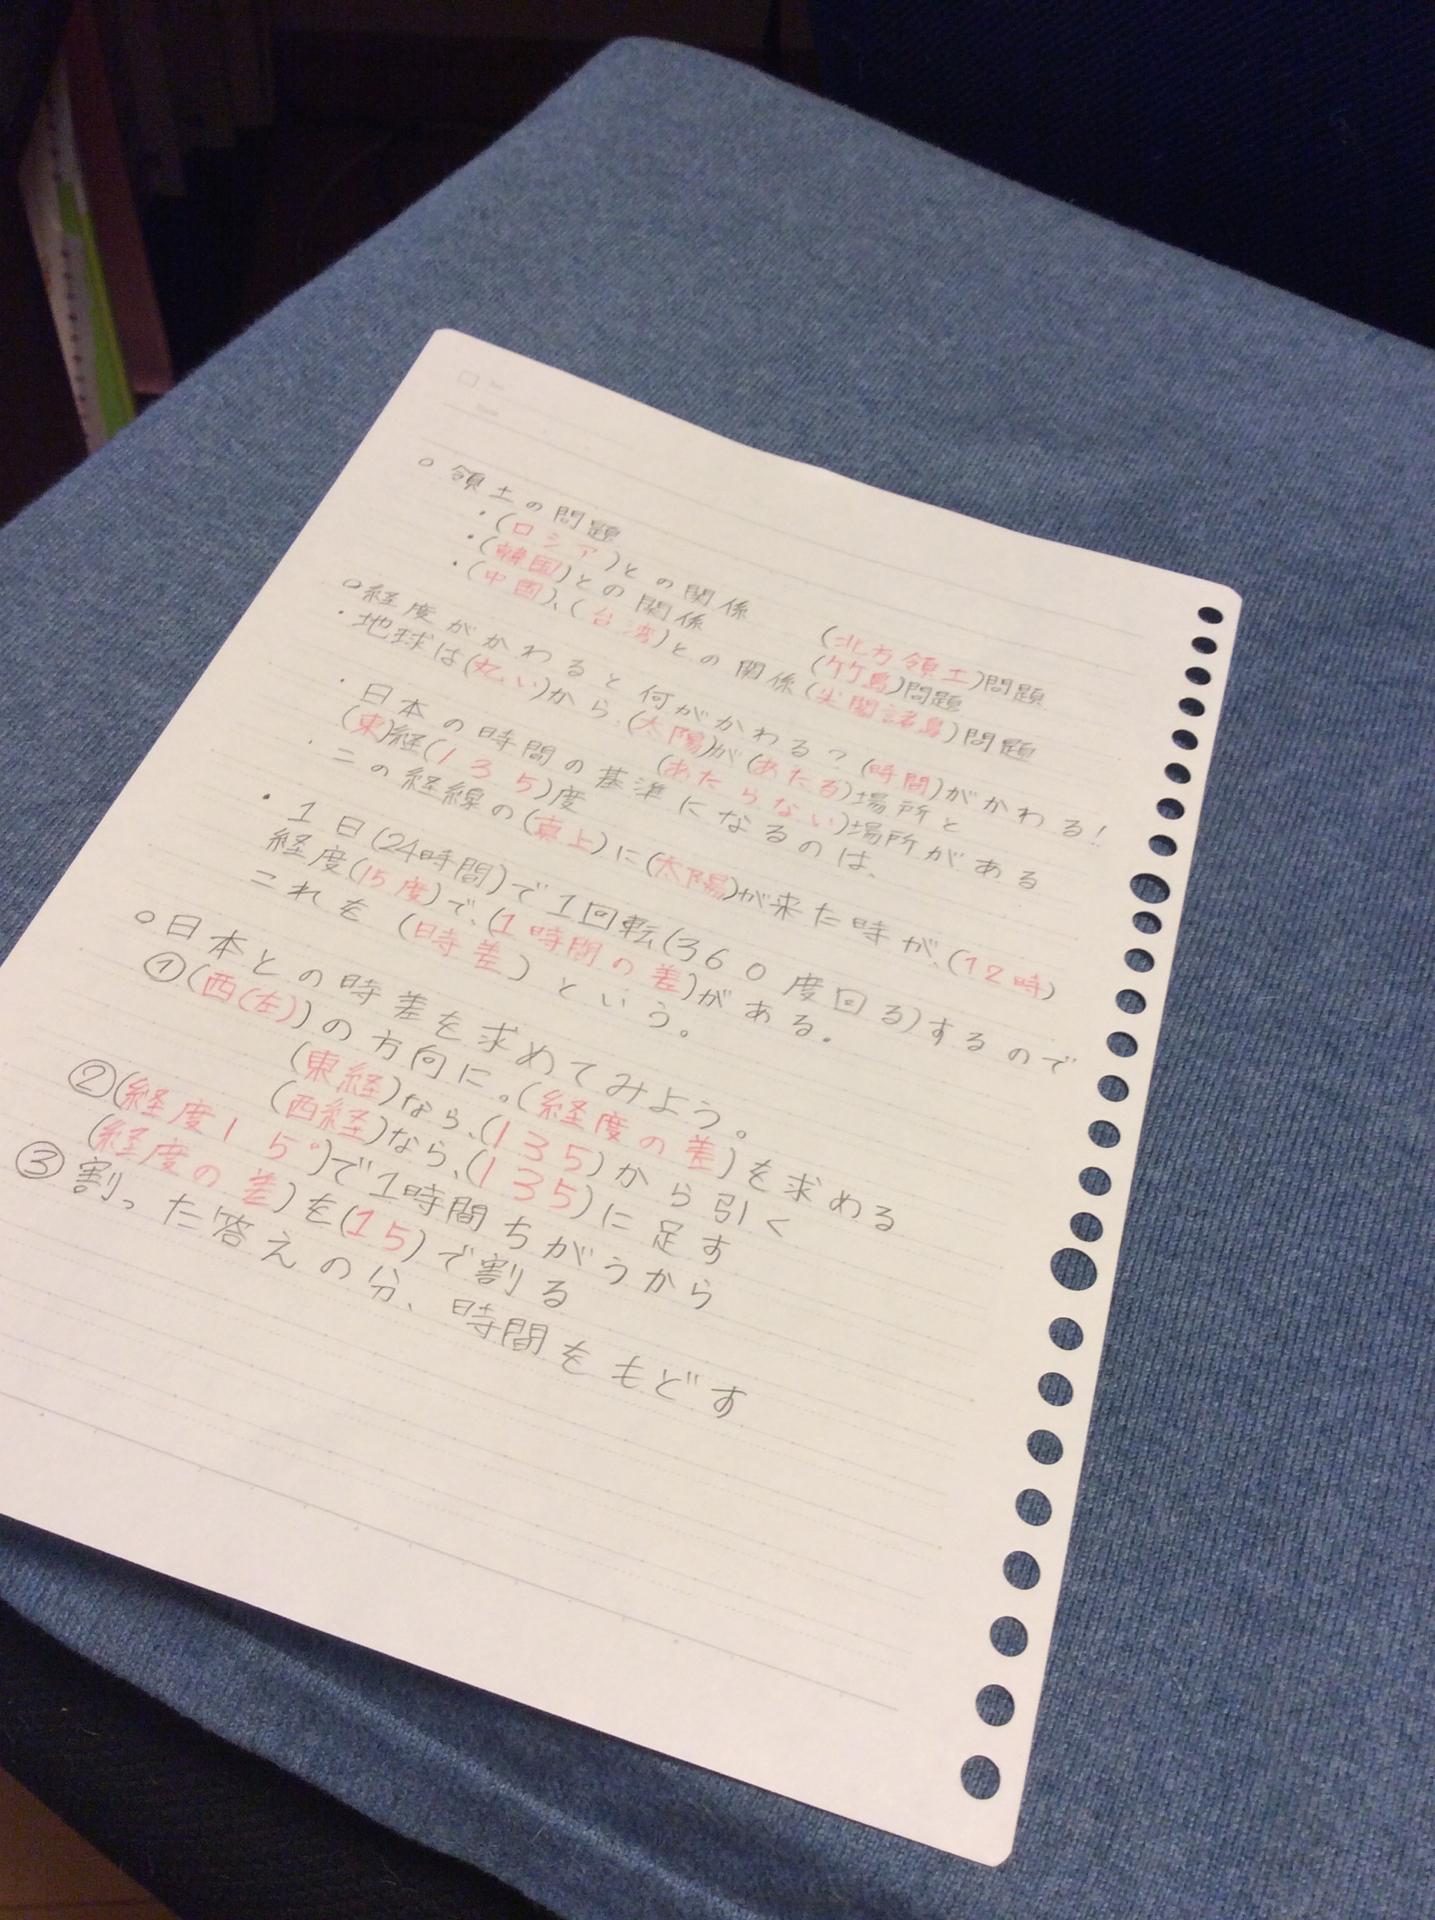 ○領土の問題
・(ロシア)との関係 (北方領土)問題
・(韓国)との関係 (竹島)問題
・(中国)、(台湾)との関係(尖閣諸島)問題
○経度がかわると何がかわる?(時間)がかわる!
・地球は(丸い)から、(太陽)が(あたる)場所と
(あたらない)場所がある
・日本の時間の基準になるのは、
(東)経(135)度
・この経線の(真上)に(太陽)が来た時が、(12時)
・1日(24時間)で1回転(360度回る)するので
経度(15度)で、(1時間の差)がある。
これを(時差)という。
○日本との時差を求めてみよう。
①(西(左))の方向に。(経度の差)を求める
(東経)なら、(135)から引く
(西経)なら、(135)に足す
②(経度15°)で1時間ちがうから
(経度の差)を(15)で割る
③割った答えの分、時間をもどす